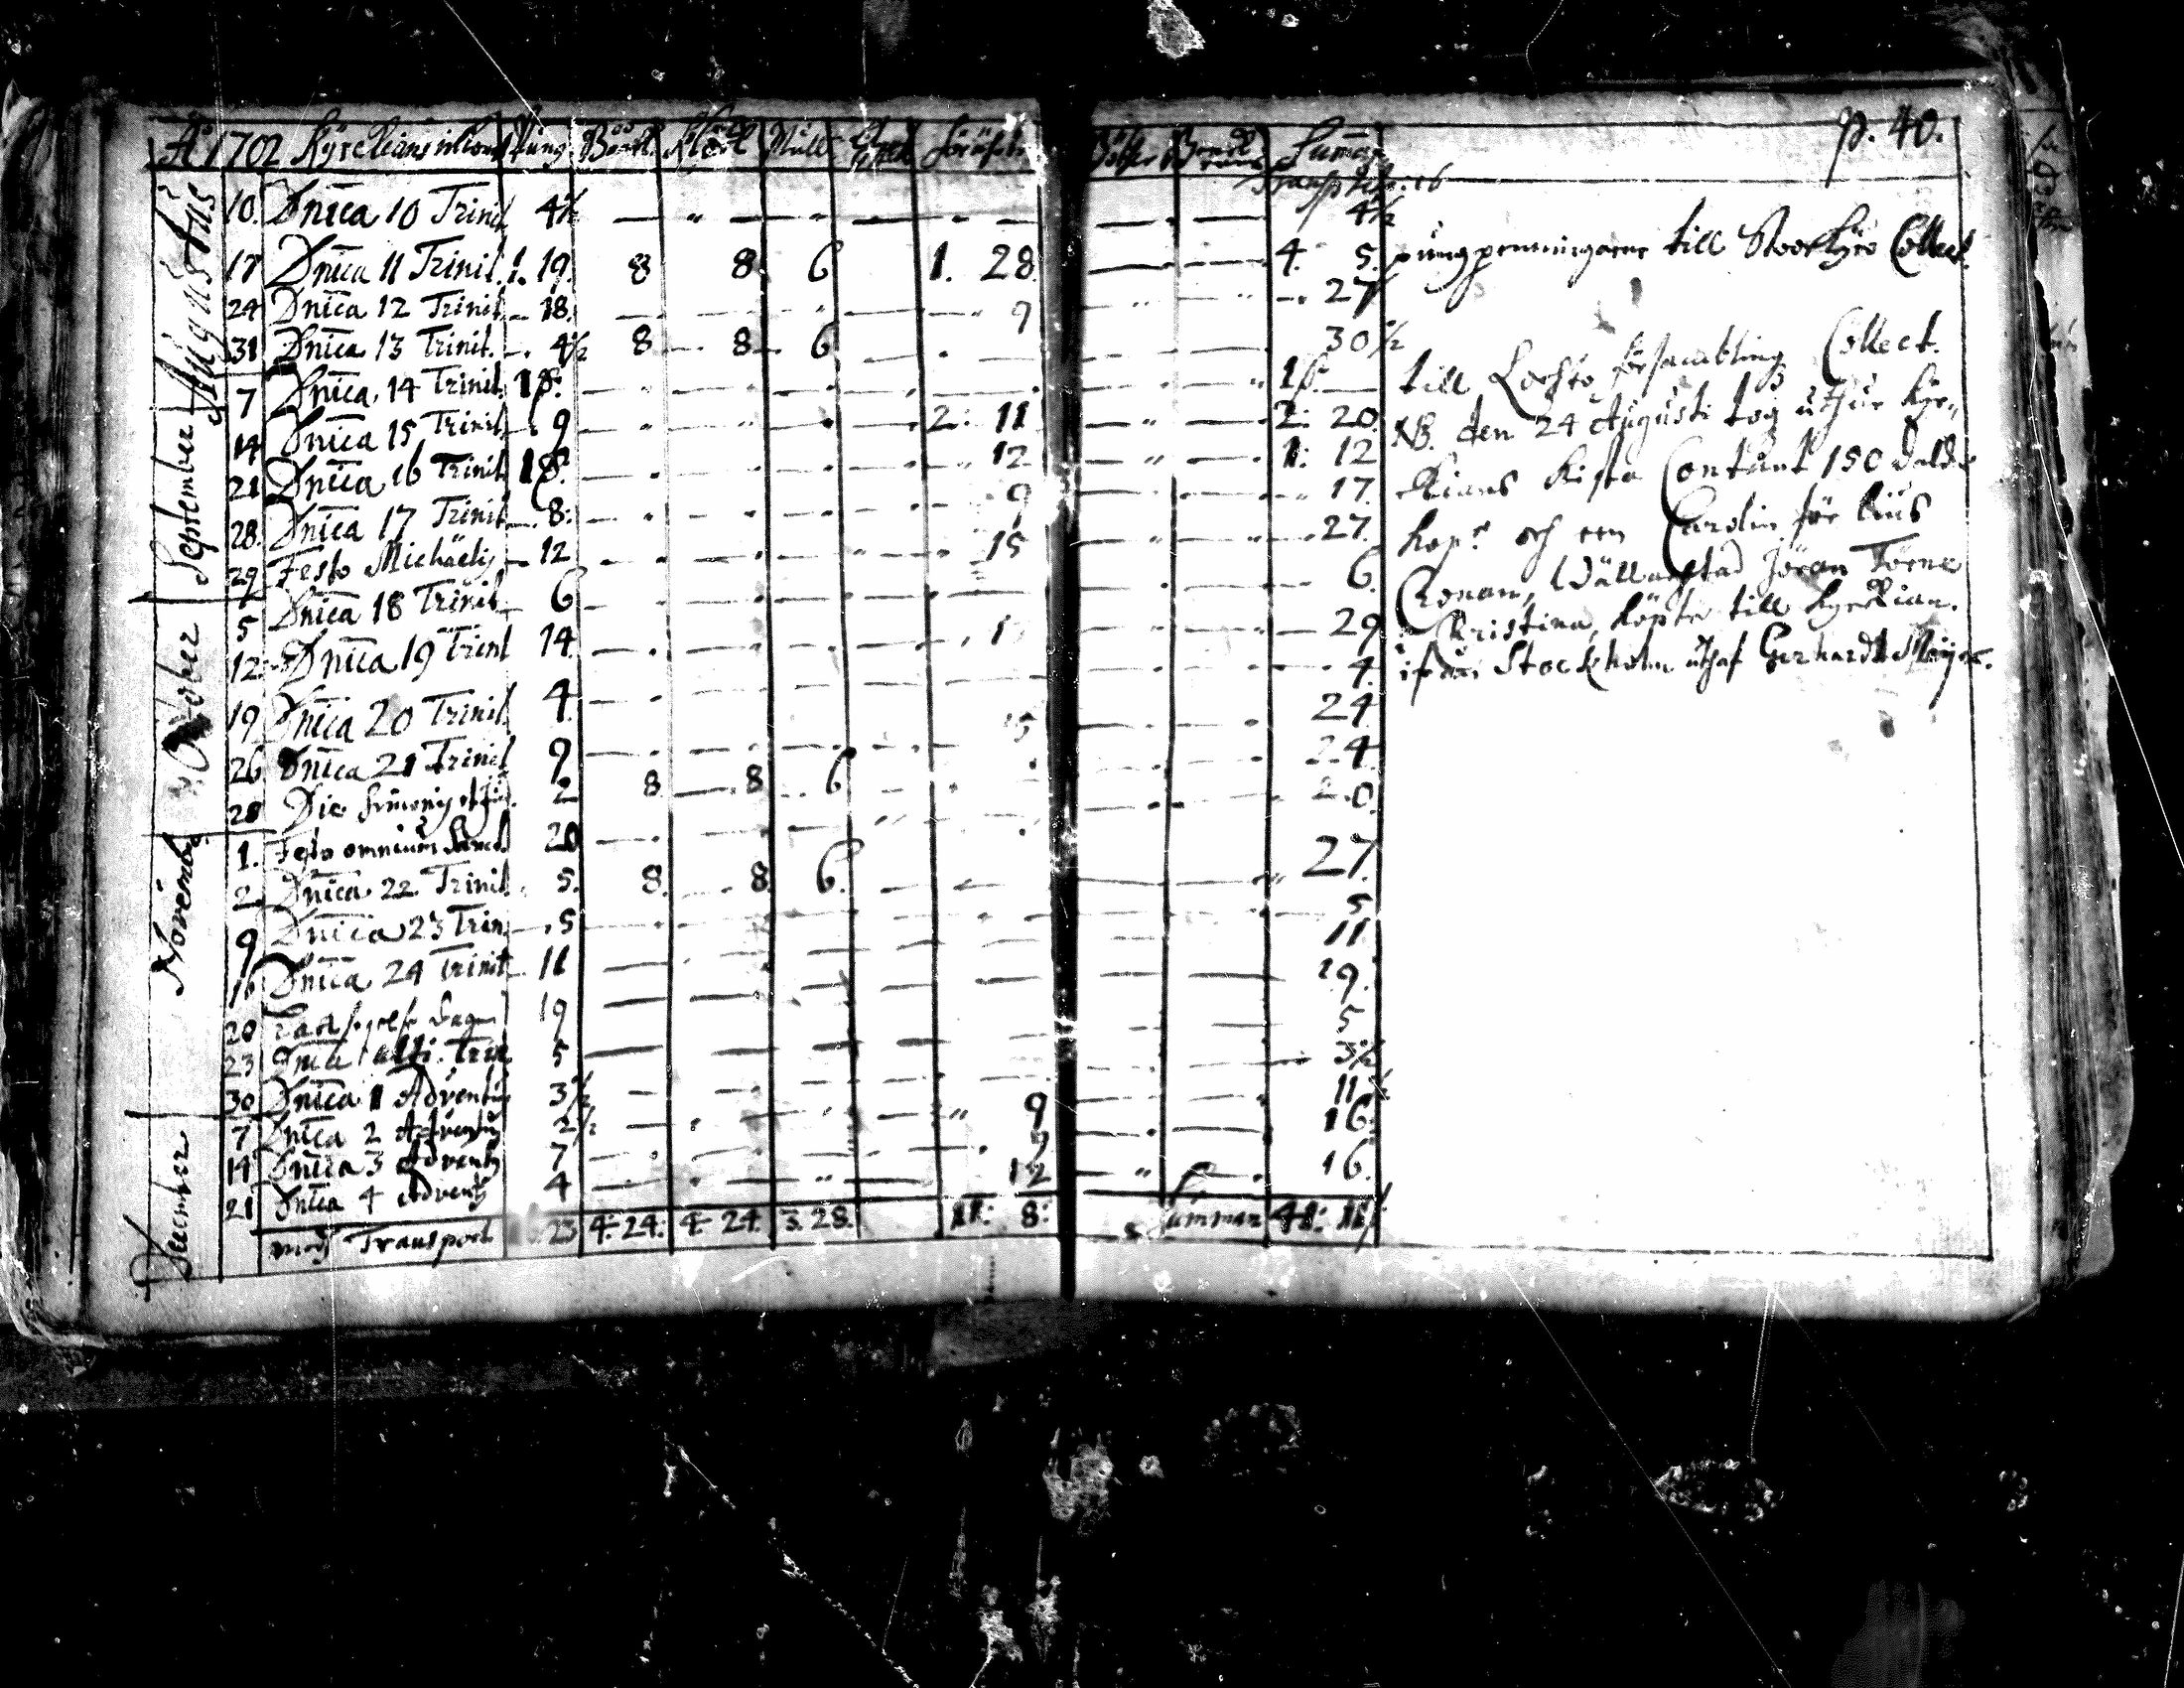 Åo 1702 Kyrckians inkom Pung Böön Klock Mull Förährt Summa p. 40.
Transp
Augustus
10. Dnica 10 Trinit 4½ 4½
17 Dnica 11 Trinit. 1. 19. 8 8. 6 1. 28. 4. 5. pungpenningarne till Stoorkyro Collect.
24 Dnica 12 Trinit 18. 9 27
31 Dnica 13 Trinit. 4½ 8 8 6 30½
September
7 Dnica 14 Trinit. 1 1 till Lochto försambling Collect.
14 Dnica 15 Trinit 9 2: 11 2: 20. NB. den 24 Augusti tog uthur Kyr
21 Dnica 16 Trinit 1 12 1: 12 kians kista Contant 150 daler
28. Dnica 17 Trinit 8: 9 17. kopr och een Carolin för lius
29 Festo Michaelis 12 15 27. Cronan,
October
5 Dnica 18 Trinit 6 6. Jöran Törne
12 Dnica 19 Trinit 14. 29 Christina, köpte till Kyrckian.
19 Dnica 20 Trinit. 4. 4. ifrån Stockholm uthaf Gerhardt Meijer.
26 Dnica 21 Trinit 9 15 24
28 Die Simonis et Ju. 2 8 8 6 24
November
1. Festo omnium Sanct. 20 20
2 Dnica 22 Trinit. 5. 8. 8. 6. 27.
9 Dnica 23 Trin 5 5
16 Dnica 24 Trinit 11 11
20 dagen 19 19.
23 Dnica Trin 5 5
30 Dnica 1 Adventus 3½ 3½
December
7 Dnica 2 Adventus 2½ 9 11½
14 Dnica 3 Advents 7 9 16.
21 Dnica 4 Advents 4 12 16.
medh Transport 23 4: 24: 4: 24. 3. 28. 11: 8: Summar 41: 11